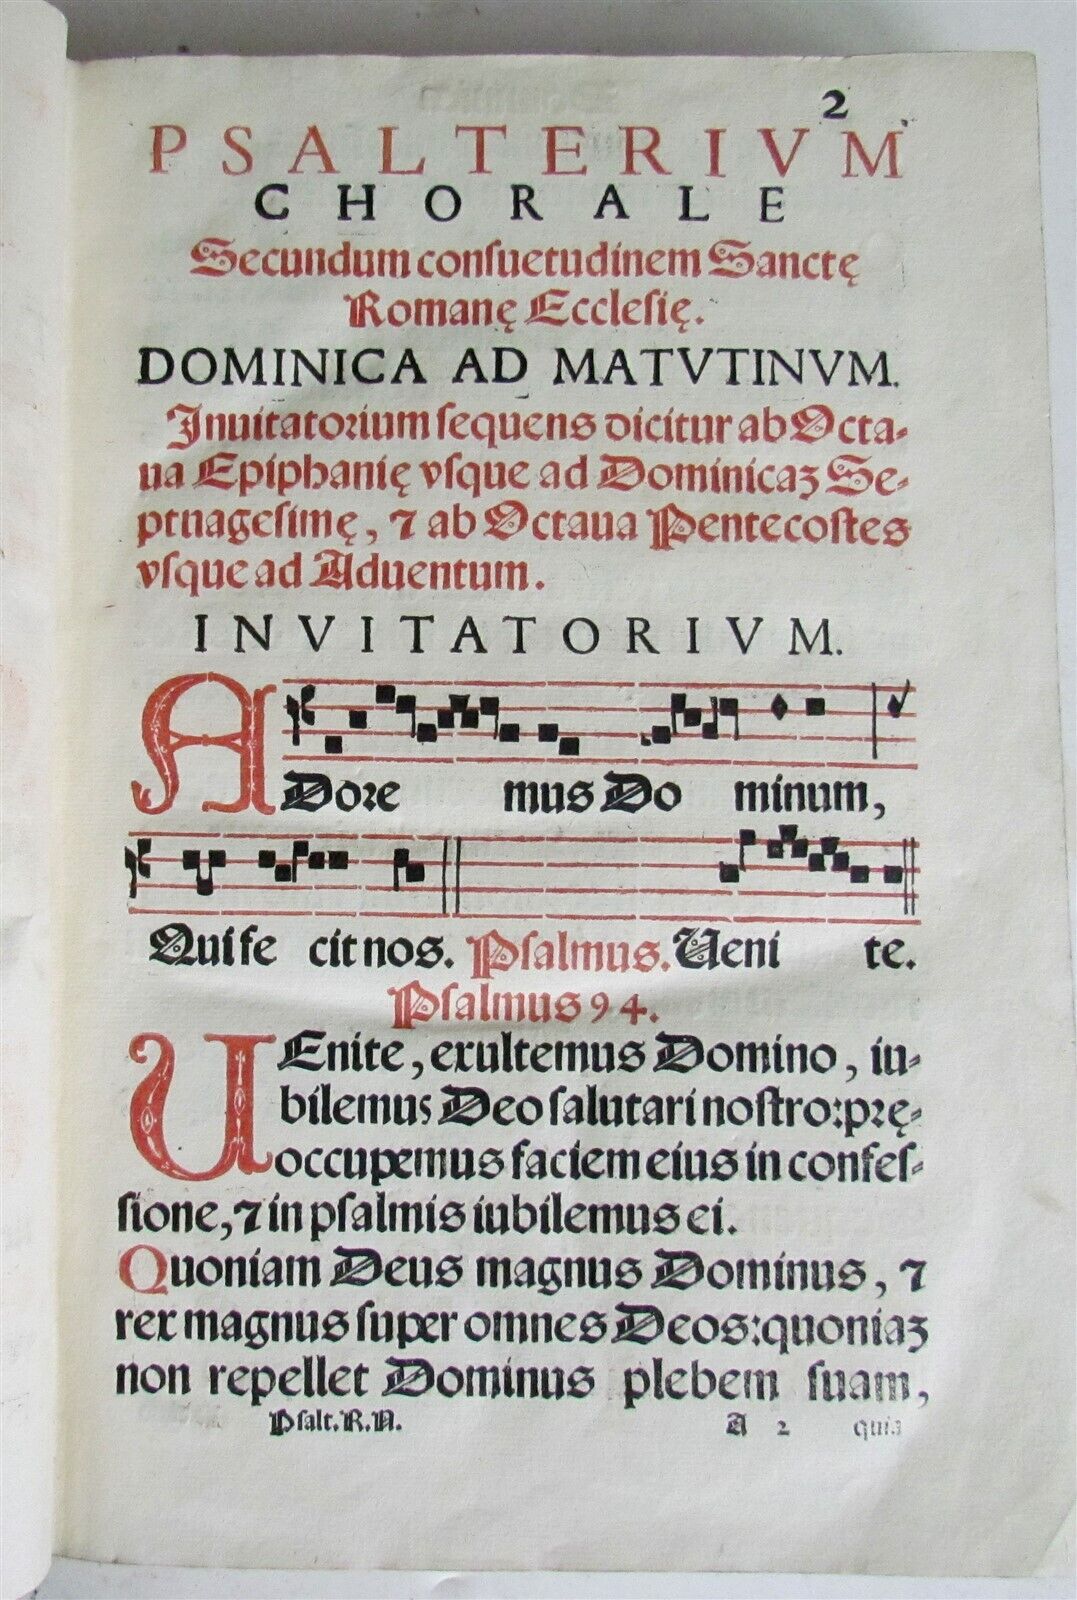 2
PSALTERIVM
CHORALE
Secundum conſuetudinem Sanctę
Romanę Eccleſię.
DOMINICA AD MATVTINVM.
Inuitatorium ſequens dicitur ab Octa-
ua Epiphanię vſque ad Dominicaȝ Se-
ptuageſimę, ⁊ ab Octaua Pentecoſtes
vſque ad Aduentum.
INVITATORIVM.
ADoꝛe mus Do minum,
Qui fe cit nos. Pſalmus. Ueni te.
Pſalmus 94.
UEnite, exultemus Domino, iu-
bilemus Deo ſalutari noſtro: pꝛę-
occupemus faciem eius in confeſ-
ſione, ⁊ in pſalmis iubilemus ei.
Quoniam Deus magnus Dominus, ⁊
rex magnus ſuper omnes Deos: quoniaȝ
non repellet Dominus plebem ſuam,
Pſalt. R. N. A 2 quia